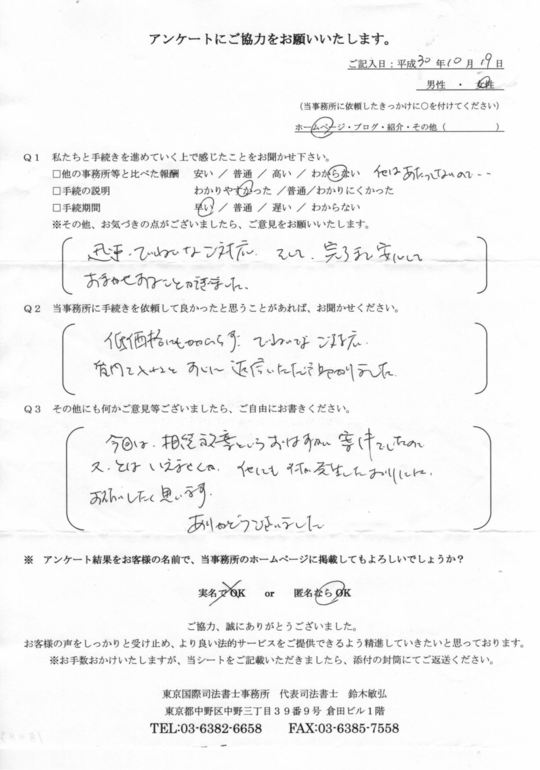 アンケートにご協力をお願いいたします。
ご記入日：平成30年10月19日
男性 ・ 女性
（当事務所に依頼したきっかけに○を付けてください）
ホームページ・ブログ・紹介・その他（　　　　）
Q1 私たちと手続きを進めていく上で感じたことをお聞かせ下さい。
□他の事務所等と比べた報酬 安い ／ 普通 ／ 高い ／ わからない 他はあたってないので--
□手続の説明 わかりやすかった ／普通／わかりにくかった
□手続期間 早い ／ 普通 ／ 遅い ／ わからない
※その他、お気づきの点がございましたら、ご意見をお願いいたします。
迅速、ていねいなご対応、そして、完了まで安心して
おまかせすることができました。
Q2 当事務所に手続きを依頼して良かったと思うことがあれば、お聞かせください。
低価格にもかかわらず、ていねいなご対応、
質問 返信いただき助かりました。
Q3 その他にも何かご意見等ございましたら、ご自由にお書きください。
今回は、相続放棄という 案件でしたので
とはいえませんが、他にも 発生したおりには、
お願いしたく思います。
ありがとうございました
※ アンケート結果をお客様の名前で、当事務所のホームページに掲載してもよろしいでしょうか？
実名でOK or 匿名ならOK
ご協力、誠にありがとうございました。
お客様の声をしっかりと受け止め、より良い法的サービスをご提供できるよう精進していきたいと思っております。
※お手数おかけいたしますが、当シートをご記載いただきましたら、添付の封筒にてご返送ください。
東京国際司法書士事務所 代表司法書士 鈴木敏弘
東京都中野区中野三丁目39番9号 倉田ビル1階
TEL:03-6382-6658 FAX:03-6385-7558